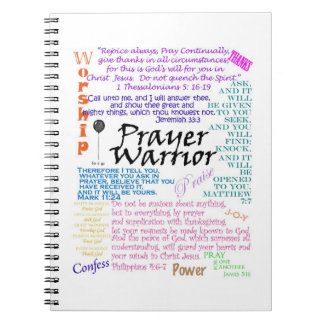 Worship
"Rejoice always, Pray Continually,
give thanks in all circumstances,
for this is God's will for you in
Christ Jesus. Do not quench the Spirit."
1 Thessalonians 5: 16-19
THANKS
Call unto me, and I will answer thee,
and show thee great and
mighty things, which thou knowest not.
Jeremiah 33:3
ASK,
AND, IT
WILL
BE GIVEN
TO YOU
SEEK,
AND YOU
WILL
FIND;
KNOCK,
AND IT
WILL BE
OPENED
TO YOU,
MATTHEW
7:7
Prayer
Warrior
THEREFORE I TELL YOU,
WHATEVER YOU ASK IN
PRAYER, BELIEVE THAT YOU
HAVE RECEIVED IT,
AND IT WILL BE YOURS.
MARK 11:24
Praise
JOY
Do not be anxious about anything,
but in everything by prayer
and supplication with thanksgiving,
let your requests be made known to God.
And the peace of God which surpasses all
understanding, will guard your hearts and
your minds in Christ Jesus.
Philippians 4:6-7
Confess
Power
PRAY
FOR
ONE
ANOTHER
JAMES 5:16